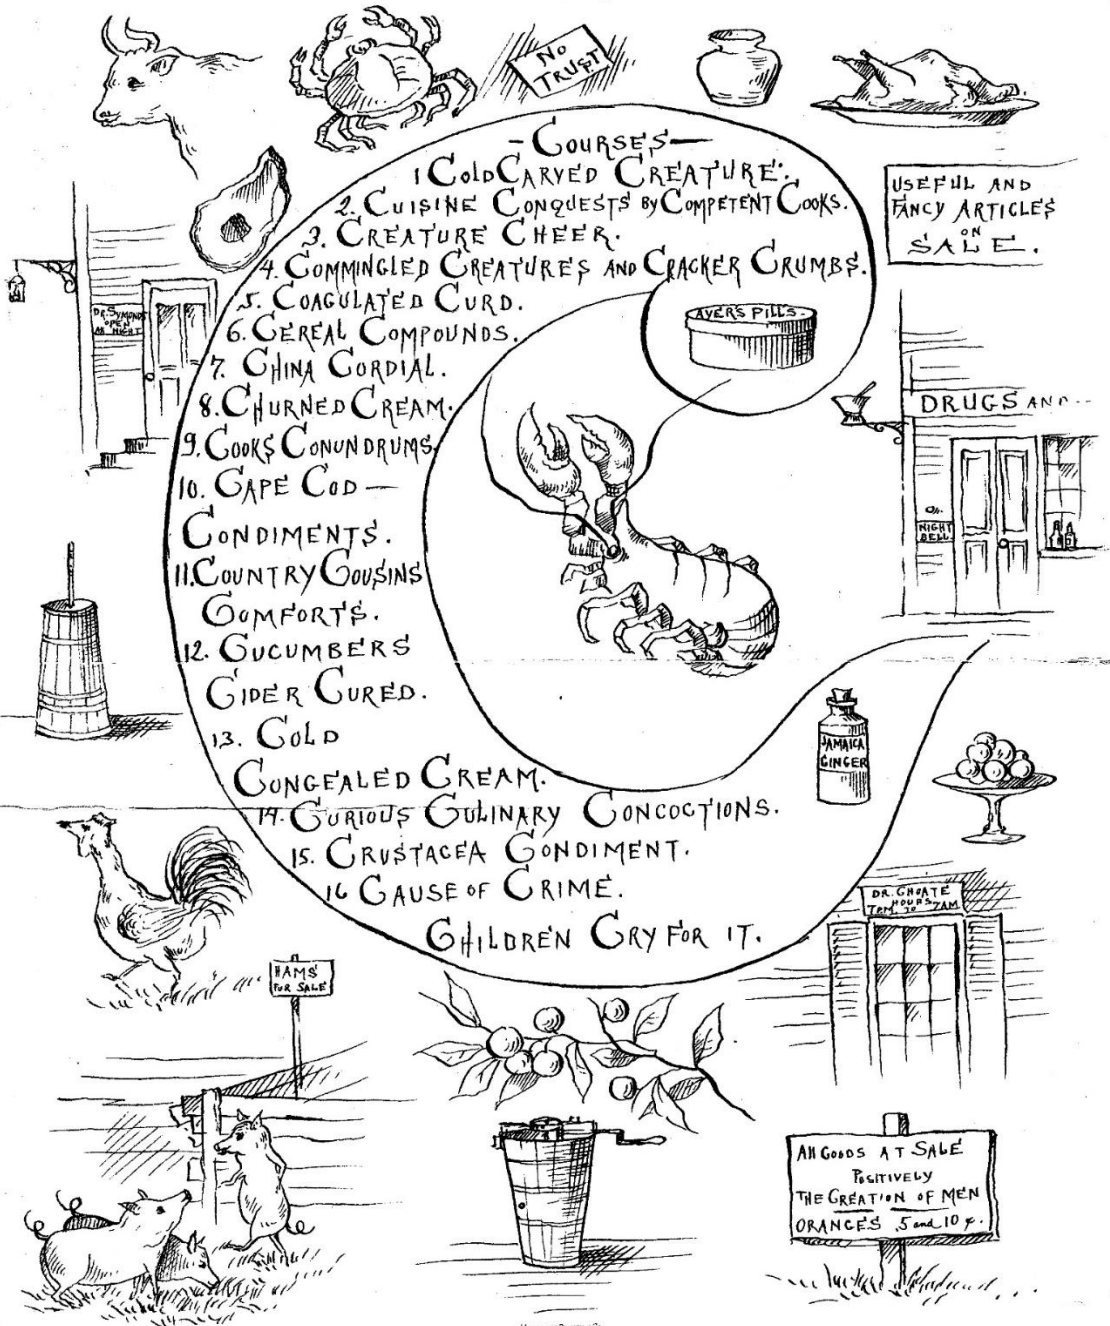 No
TRUST
-COURSES-
1 COLD CARVED CREATURE.
2. CUISINE CONQUESTS BY COMPETENT COOKS.
3. CREATURE CHEER.
4. COMMINGLED CREATURES AND CRACKER CRUMBS.
5. COAGULATED CURD.
6. CEREAL COMPOUNDS.
7. CHINA CORDIAL.
8. CHURNED CREAM.
9. COOKS CONUNDRUMS.
10. CAPE COD —
CONDIMENTS.
11. COUNTRY COUSINS
COMFORTS.
12. CUCUMBERS
CIDER CURED.
13. COLD
CONGEALED CREAM.
14. CURIOUS CULINARY CONCOCTIONS.
15. CRUSTACEA CONDIMENT.
16 CAUSE OF CRIME.
CHILDREN CRY FOR IT.
USEFUL AND
FANCY ARTICLES
ON
SALE.
DR. SYMONDS
OPEN
All NIGHT
AYER'S PILLS.
DRUGS AND...
NIGHT
BELL
JAMAICA
GINGER
DR. CHOATE
HOURS
7PM TO 7AM
HAMS
FOR SALE
All GOODS AT SALE
POSITIVELY
THE CREATION OF MEN
ORANGES 5 and 10 ¢.